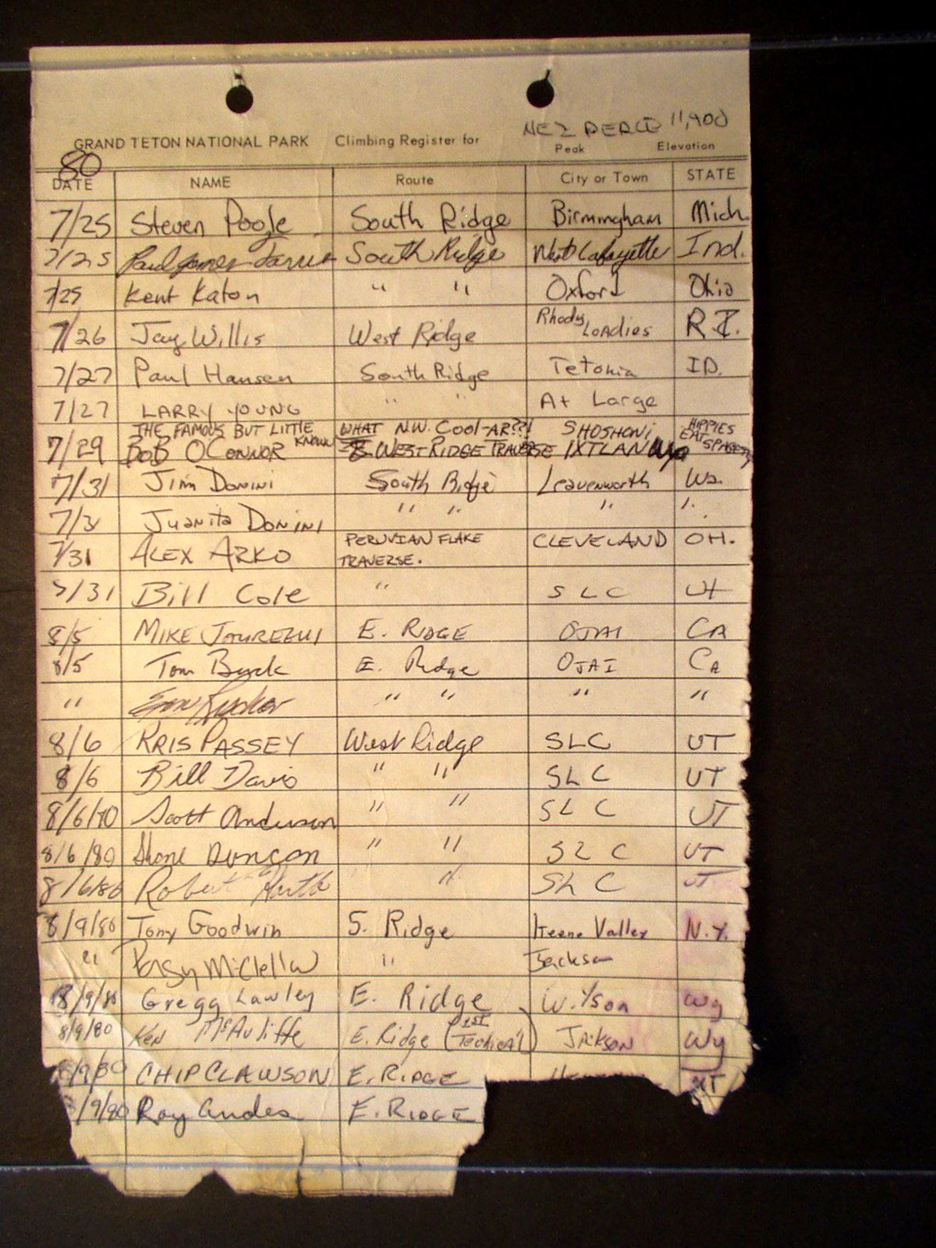 NEZ PERCE 11,900
GRAND TETON NATIONAL PARK Climbing Register for Peak Elevation
80
DATE NAME Route City or Town STATE
7/25 Steven Poole South Ridge Birmingham Mich
7/25 Paul James South Ridge West Lafayette Ind.
7/25 Kent Katon " " Oxford Ohio
7/26 Jay Willis West Ridge Rhody Loadies R.I.
7/27 Paul Hansen South Ridge Tetonia ID.
7/27 LARRY YOUNG " " At Large
THE FAMOUS BUT LITTLE KNOWN WHAT N.W. COOL-AR??! SHOSHONI, HIPPIES EAT
7/29 BOB O'CONNOR & WEST RIDGE TRAVERSE IXTLAN Wyo
7/31 Jim Donini South Ridge Leavenworth Wa.
7/31 Juanita DONINI " " " "
7/31 ALEX ARKO PERUVIAN FLAKE CLEVELAND OH.
TRAVERSE.
7/31 Bill Cole " SLC UT
8/5 MIKE E. RIDGE OJAI CA
8/5 Tom E. Ridge OJAI CA
" " " " "
8/6 KRIS PASSEY West Ridge SLC UT
8/6 Bill Davis " " SLC UT
8/6/80 Scott Anderson " " SLC UT
8/6/80 Shane Duncan " " SLC UT
8/6/80 Robert " SLC UT
8/9/80 Tony Goodwin S. Ridge Keene Valley N.Y.
" " Jackson
8/9/80 Gregg Lawley E. Ridge Wilson Wy
8/9/80 Ken McAuliffe E. Ridge (1ST Technical) Jackson Wy
8/9/80 CHIP CLAWSON E. RIDGE
8/9/80 Ray Andes E. RIDGE